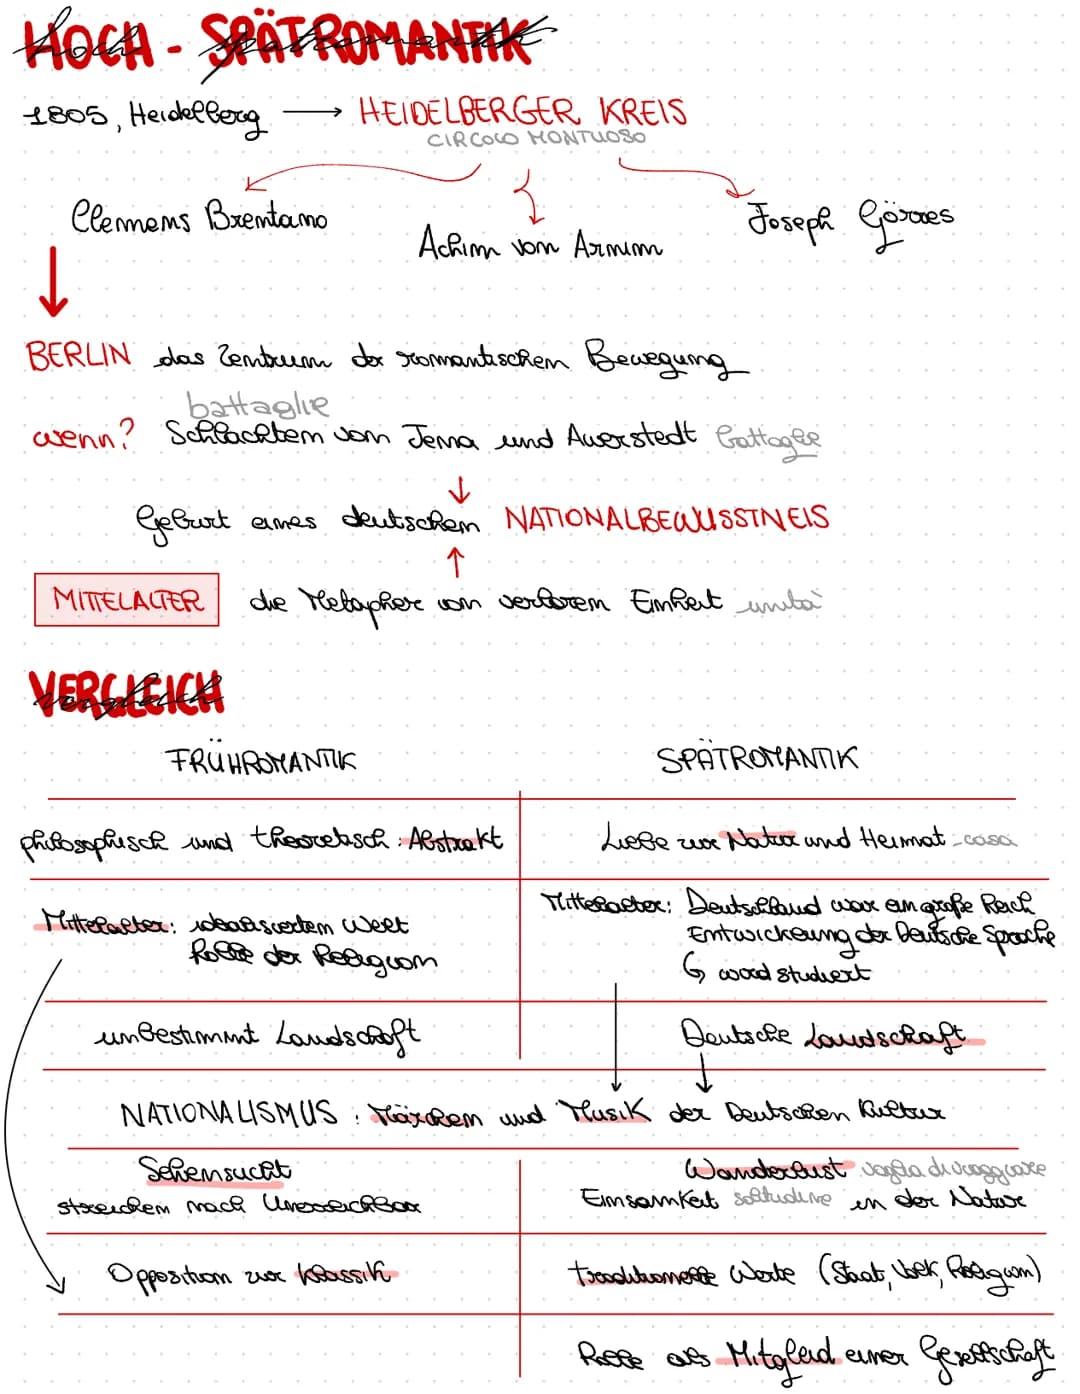 HOCH - SPÄTROMANTIK
hoch spätromantik
1805, Heidelberg → HEIDELBERGER KREIS
CIRCOLO MONTUOSO
Clemens Brentano
Achim von Arnim
Joseph Görres
BERLIN das Zentrum der romantischen Bewegung
battaglie
wenn? Schlachten von Jena und Auerstedt battaglie
Geburt eines deutschen NATIONALBEWUSSTNEIS
MITTELALTER die Metapher von verlorem Einheit unità
VERGLEICH
vergleich
FRÜHROMANTIK
SPÄTROMANTIK
philosophisch und theoretisch: Abstrakt
Liebe zur Natur und Heimat - casa
Mittelalter: idealisierten Welt
Rolle der Religion
Mittelalter: Deutschland war ein große Reich
Entwickelung der Deutsche Sprache
↳ ward studiert
unbestimmt Landschaft
Deutsche Landschaft
NATIONALISMUS: Märchen und Musik der Deutschen Kultur
Sehensucht
streichen nach Unerreichbar
Wanderlust voglia di viaggiare
Einsamkeit solitudine in der Natur
Opposition zur Klassik
traditionelle Werte (Staat, Volk, Religion)
Rolle als Mitglied einer Gesellschaft